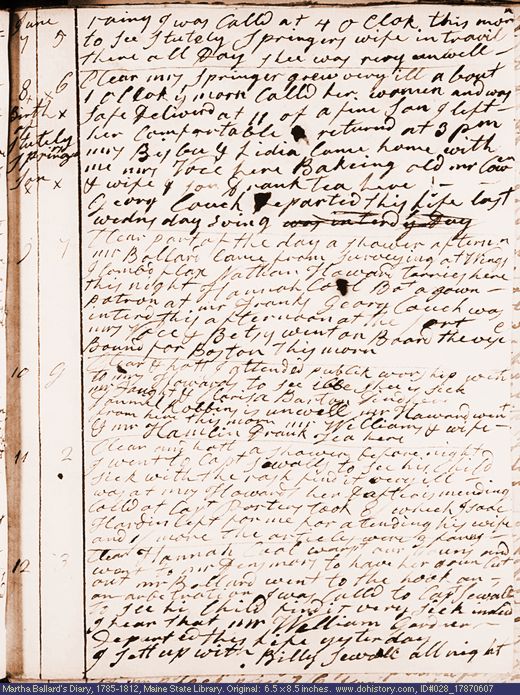 June
7 5 rainy I was Calld at 4 O Clok this morn
to see Stutely Springers wife in travil
there all Day shee was very unwell -
8 x 6 Clear mrs Springer grew very ill about
1 oClok morn Calld her women and was
Birth x safe Deliverd at 11 of a fine son I left
Stutely her Comfortable & returnd at 3 pm
Springs mrs Bisbee & Lidia Came home with
son me mrs Voce here Bakeing old mr Cowen
x x & wife & son Drank tea here -
Georg Couch Departed this Life last
wedns day Evng was interd ys Day
9 7 Clear part of the day a shower afternn
mr Ballard Came from surveying at
I Combd flax Jathan Howard tarries here
this night Hannah Cool Bot a gown -
patron at mr Franks Georg Couch was
interd this afternoon at the
mrs Voce & Betsy went on Board the
Bound for Boston this morn
10 g Clear & hott I attended publik worship with
to mrs Howards to see shee is sick
my Clarisa Barton
Robbins is unwell mr Howard went
from here this morn mr Williams & wife -
& mr Hamlin Drank Tea here
11 2 Clear morn hott a shower before night
I went to Capt Sewalls to see his Child
sick with the rash find it very ill -
was at mrs Howards her is mending
calld at Capt Porters took of which Isaac
Hardin left for me for atending his wife
and 1/ more the articles were
12 3 Clear Hannah Cool warpt our and
went to mr Densmores to have her gown Cut
out mr Ballard went to the hook on -
an arbetration I was Calld to Capt Sewalls
to see his Child find it very sick indeed
I hear that mr William Gardner -
Departed this Life yesterday
I sett up with Billy Sewall all night
Martha Ballard's Diary, 1785-1812, Maine State Library. Original: 6.5 x 8.5 inches. www.dohistory.com, ID#028_17870607